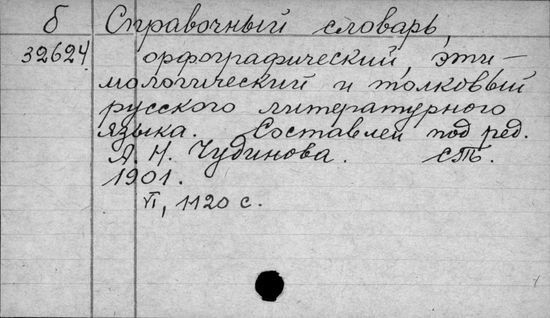 б Справочный словарь,
32624 орфографический, эти-
мологический и толковый
русского литературного
языка. Составлен под ред.
А. Н. Чудинова. СПб.
1901.
VI, 1120 с.